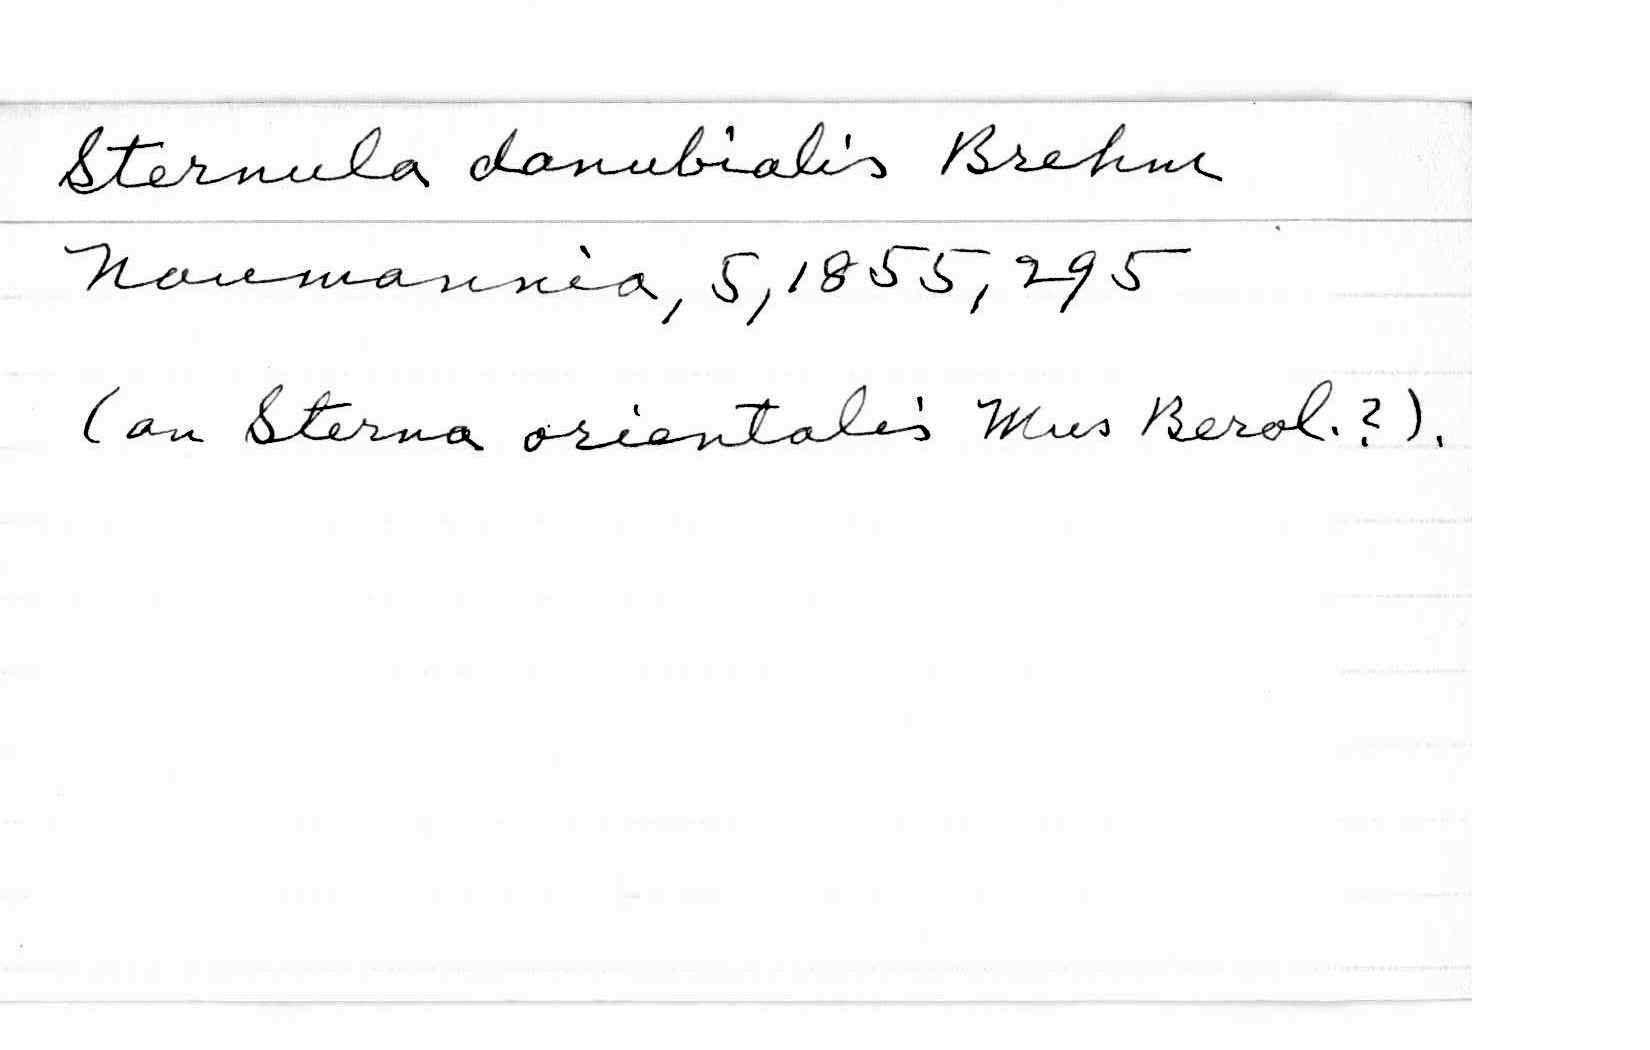 Sternula danubialis Brehm
Naumannia, 5, 1855, 295
(an Sterna orientalis Mus Berol.?).